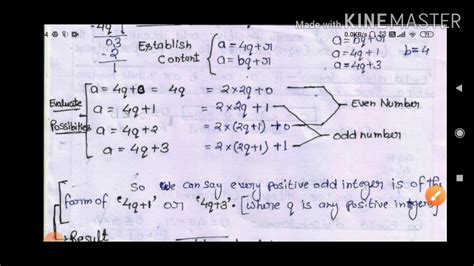 Made with KINEMASTER
-4q
03
-2
1
Establish
Content
a = 4q+r
a = bq+r
0.0KB/s
a = bq+r
a = 4q+1
a = 4q+3
b=4
Evaluate
Possibilities
a = 4q+0 = 4q = 2×2q+0
a = 4q+1 = 2×2q+1
a = 4q+2 = 2×(2q+1)+0
a = 4q+3 = 2×(2q+1)+1
Even Number
odd number
So we can say every positive odd integer is of the
form of '4q+1' or '4q+3'. [where q is any positive integer]
Result